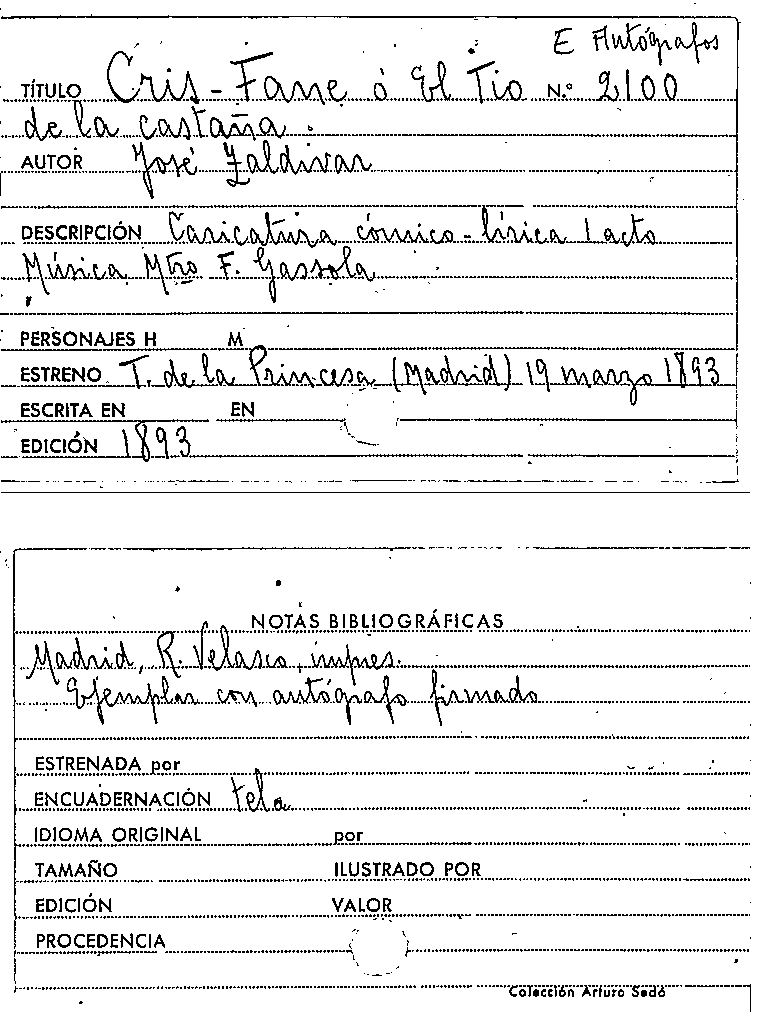 E Autógrafos
TÍTULO Cris-Fane ó El Tio N.º 2100
de la castaña.
AUTOR José Zaldivar
DESCRIPCIÓN Caricatura cómico-lírica 1 acto
Música Mtro F. Gassola
PERSONAJES H M
ESTRENO T. de la Princesa (Madrid) 19 marzo 1893
ESCRITA EN EN
EDICIÓN 1893
NOTAS BIBLIOGRÁFICAS
Madrid, R. Velasco, impres.
Ejemplar con autógrafo firmado
ESTRENADA por
ENCUADERNACIÓN tela
IDIOMA ORIGINAL por
TAMAÑO ILUSTRADO POR
EDICIÓN VALOR
PROCEDENCIA
Colección Arturo Sedó